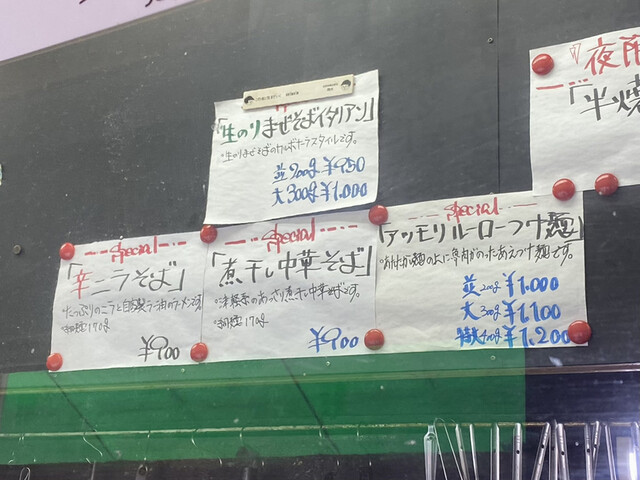 「生のりまぜそばイタリアン」
・生のりまぜそばのカルボナーラスタイルです。
並200g ¥950
大300g ¥1.000
Special
「辛ニラそば」
・たっぷりのニラと自家製ラー油のラーメンです。
170g
¥900
Special
「煮干し中華そば」
・津軽系のあっさり煮干し中華そばです。
170g
¥900
Special
「アツモリルーローつけ麺」
並200g ¥1.000
大300g ¥1.100
特大400g ¥1.200
夜限
「半